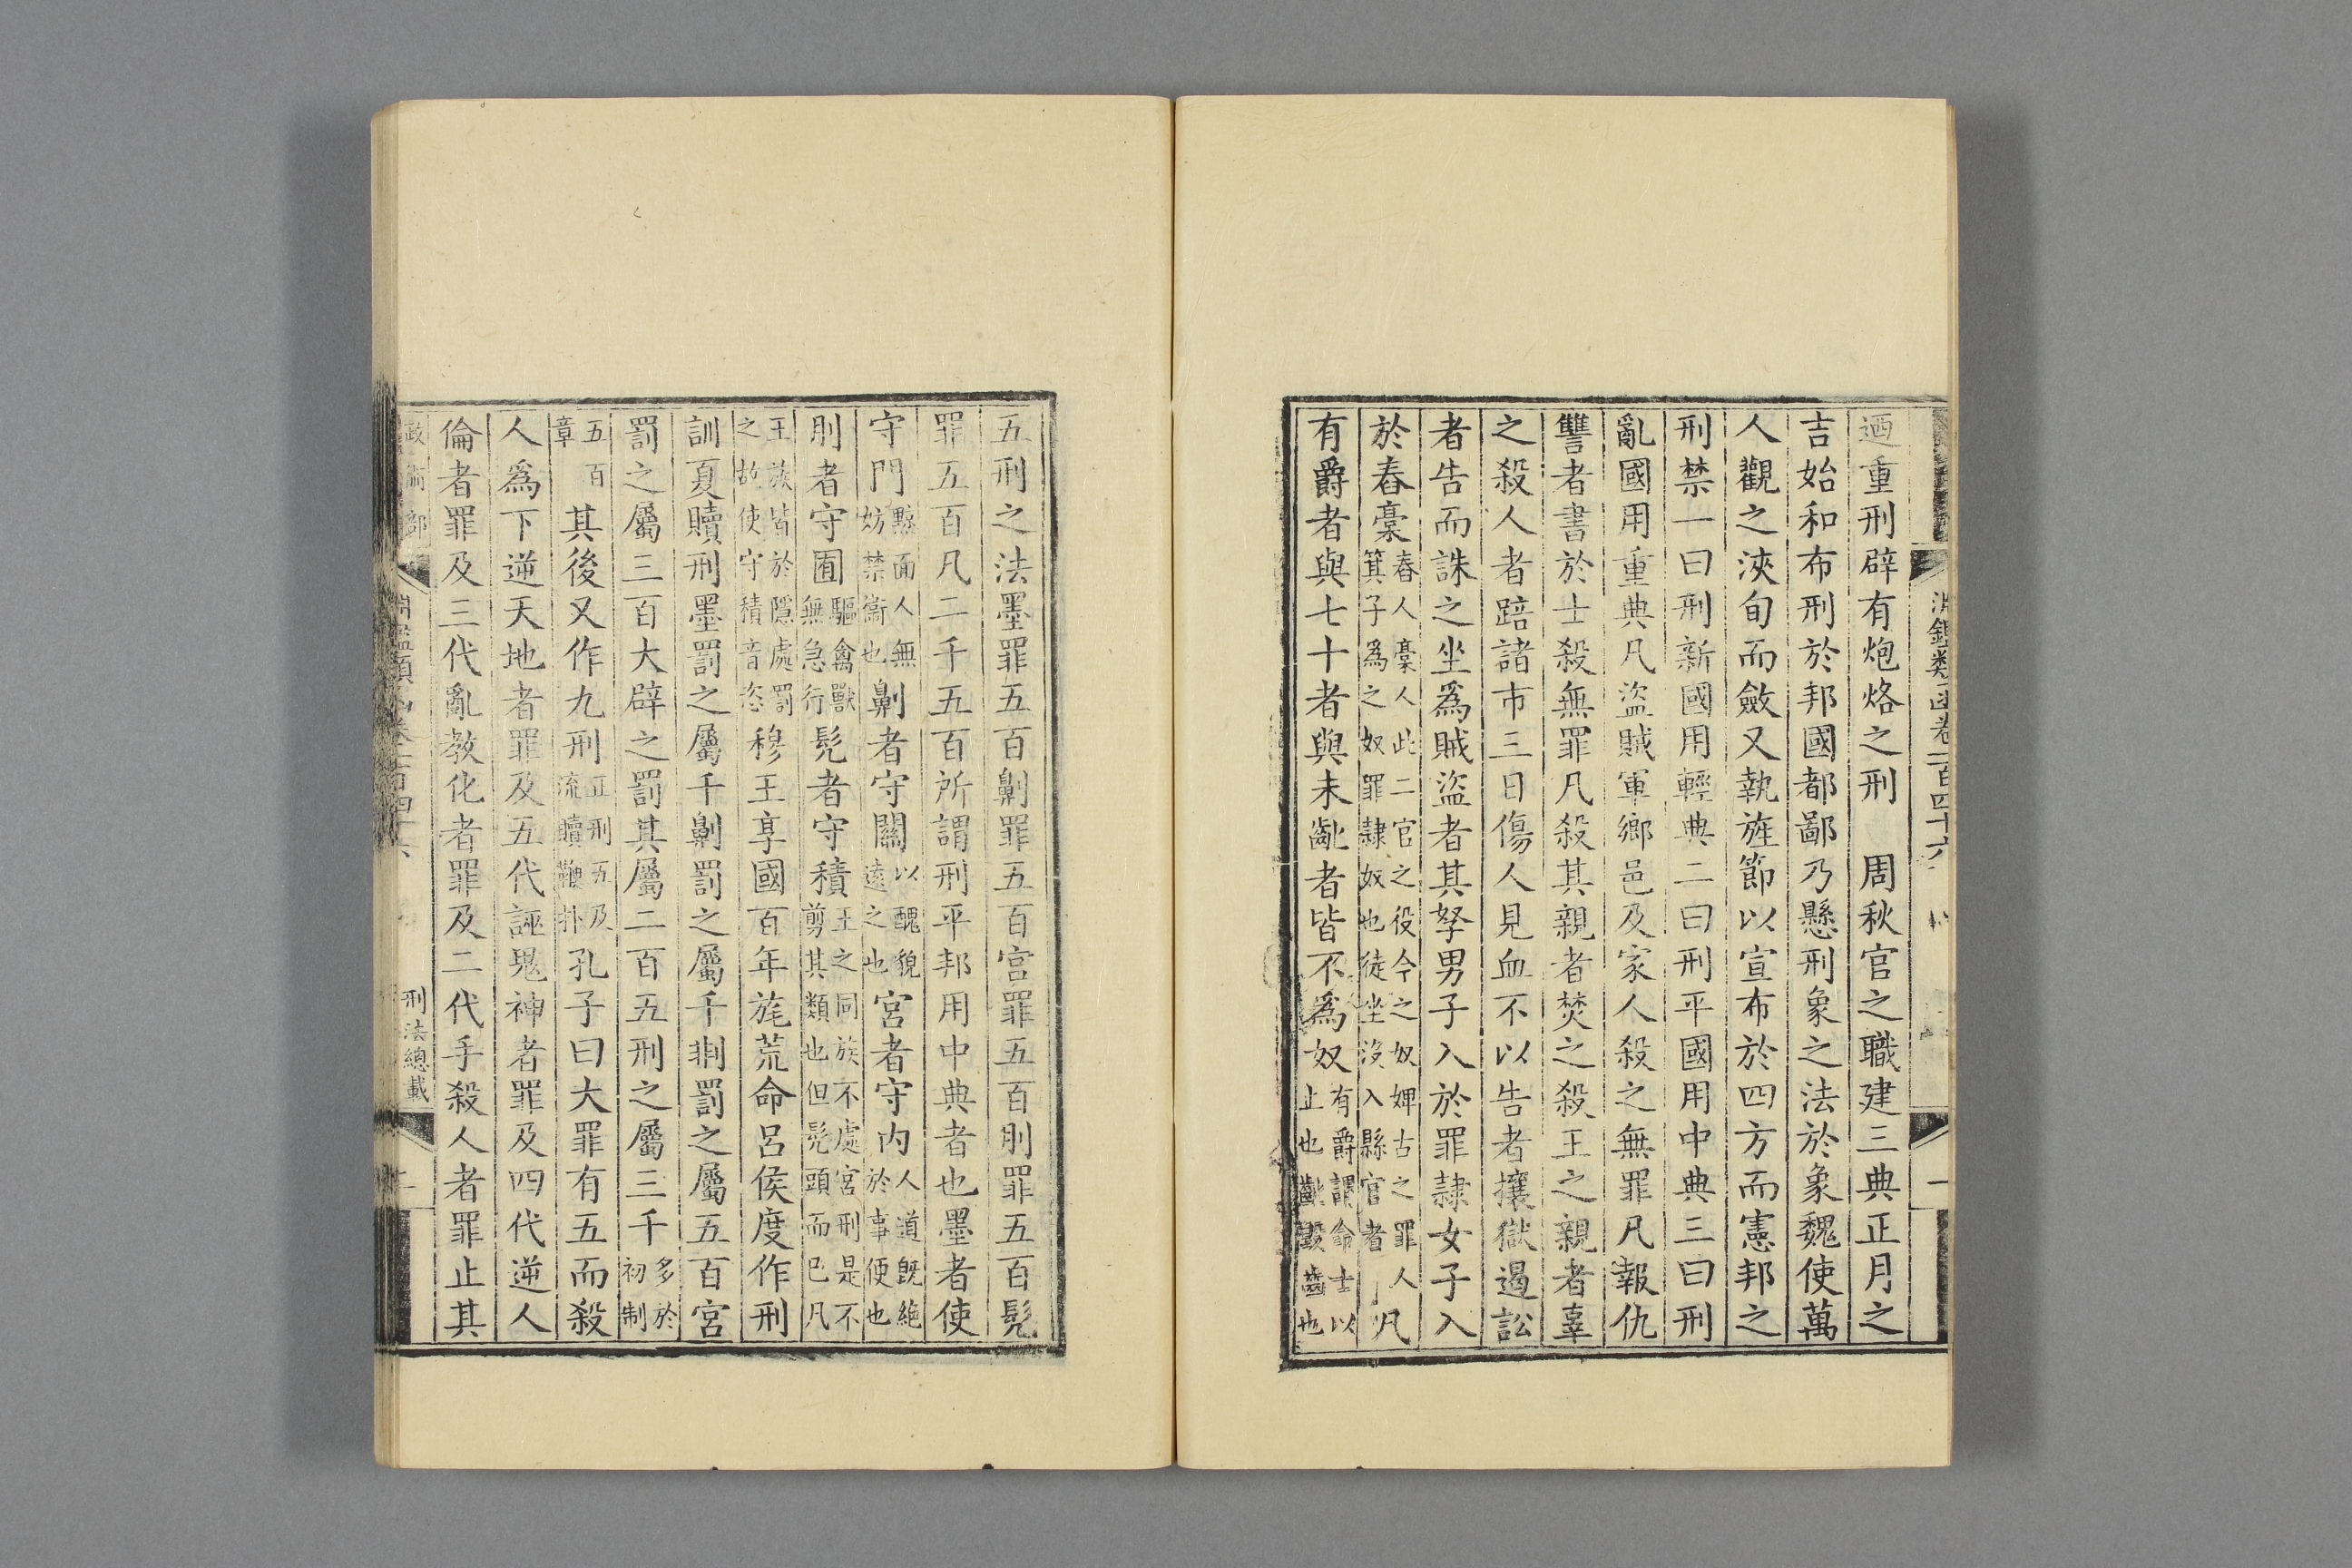 淵鑑類函卷一百四十六
一
迺重刑辟有炮烙之刑　周秋官之職建三典正月之
吉始和布刑於邦國都鄙乃懸刑象之法於象魏使萬
人觀之浹旬而斂又執旌節以宣布於四方而憲邦之
刑禁一曰刑新國用輕典二曰刑平國用中典三曰刑
亂國用重典凡盜賊軍鄉邑及家人殺之無罪凡報仇
讐者書於士殺無罪凡殺其親者焚之殺王之親者辜
之殺人者踣諸市三日傷人見血不以告者攘獄遏訟
者告而誅之坐爲賊盜者其孥男子入於罪隷女子入
於舂槀舂人槀人此二官之役今之奴婢古之罪人箕子爲之奴罪隷奴也徒坐沒入縣官者凡
有爵者與七十者與未齔者皆不爲奴有爵謂命士以止也齔毀齒也
五刑之法墨罪五百劓罪五百宮罪五百刖罪五百髡
罪五百凡二千五百所謂刑平邦用中典者也墨者使
守門黥面人無妨禁衞也劓者守關以醜貌遠之也宮者守内人道旣絶於事便也
刖者守囿驅禽獸無急行髡者守積王之同族不處宮刑是不剪其類也但髡頭而已凡
王族皆於隱處罰之故使守積音恣穆王享國百年旄荒命呂侯度作刑
訓夏贖刑墨罰之屬千劓罰之屬千剕罰之屬五百宮
罰之屬三百大辟之罰其屬二百五刑之屬三千多於初制
五百章其後又作九刑正刑五及流贖鞭扑孔子曰大罪有五而殺
人爲下逆天地者罪及五代誣鬼神者罪及四代逆人
倫者罪及三代亂教化者罪及二代手殺人者罪止其
政術部
刑法總載